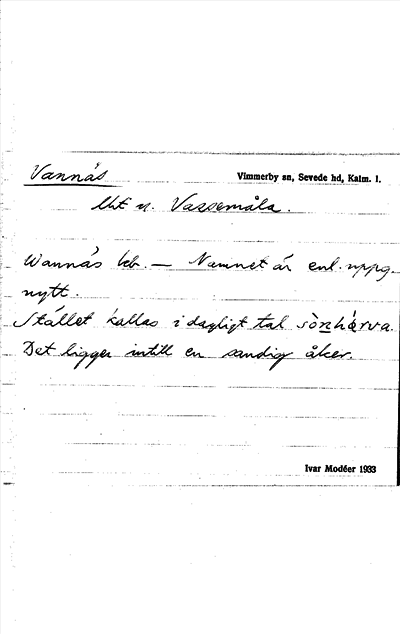 Vannås
Vimmerby sn, Sevede hd, Kalm. l.
lht u. Vassemåla.
Wannås keb. — Namnet är enl. uppg.
nytt.
Stället kallas i dagligt tal sònhárva.
Det ligger intill en sandig åker.
Ivar Modéer 1933